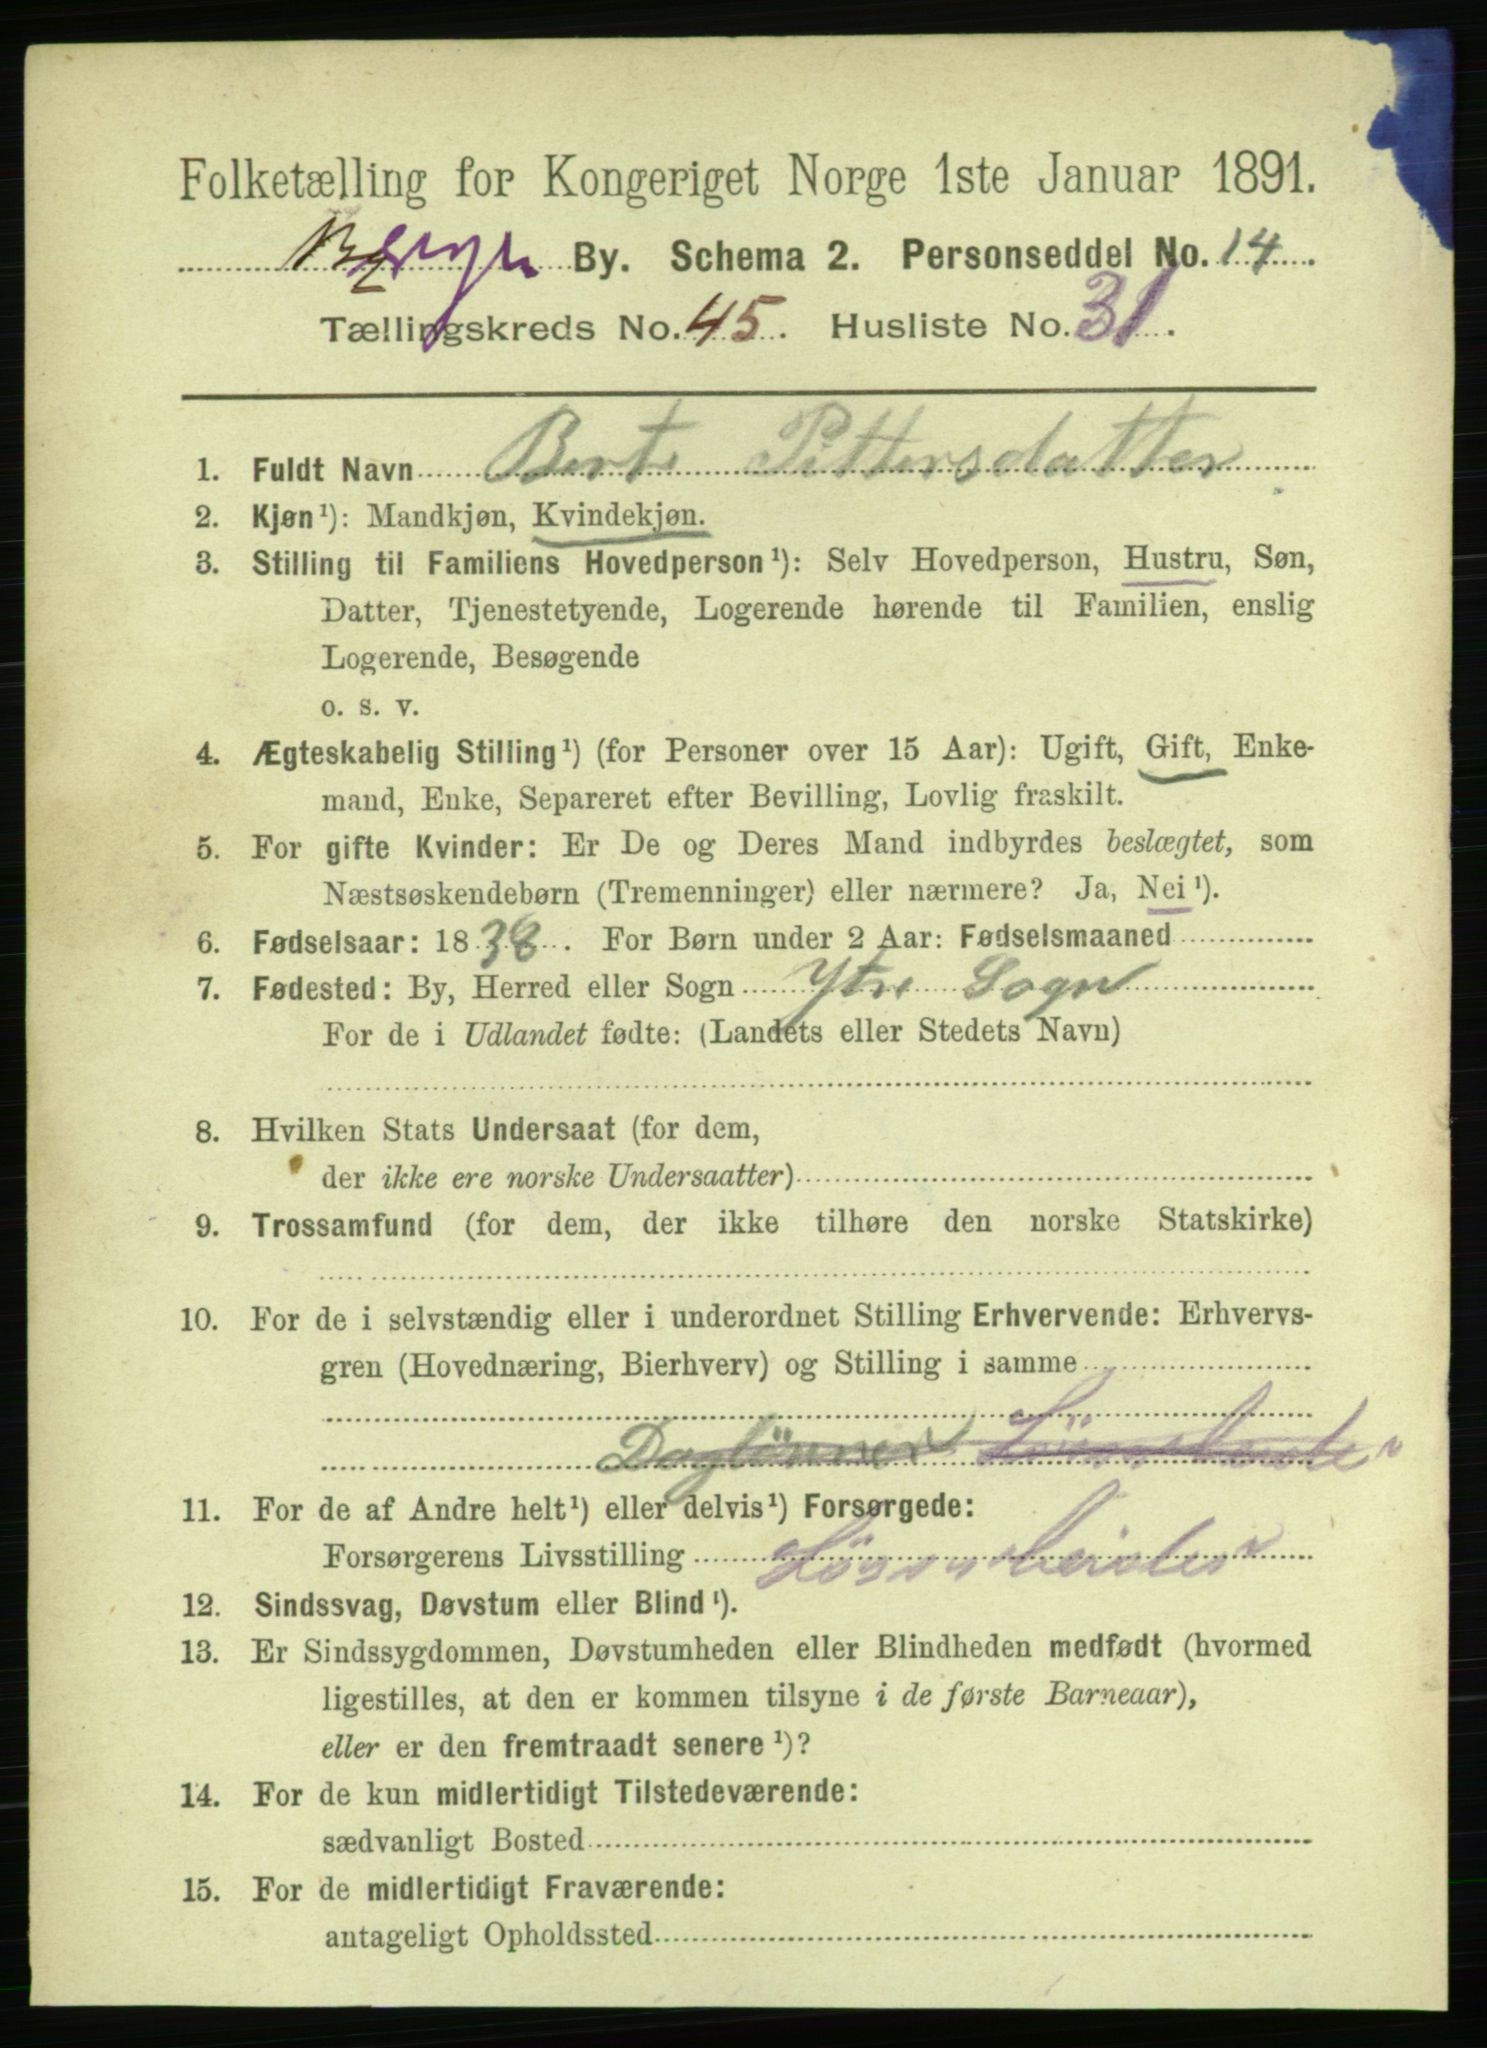 Folketælling for Kongeriget Norge 1ste Januar 1891.
Bergen By. Schema 2. Personseddel No. 14.
Tællingskreds No. 45. Husliste No. 31.
1. Fuldt Navn Berte Pittersdatter
2. Kjøn¹): Mandkjøn, Kvindekjøn.
3. Stilling til Familiens Hovedperson¹): Selv Hovedperson, Hustru, Søn,
Datter, Tjenestetyende, Logerende hørende til Familien, enslig
Logerende, Besøgende
o. s. v.
4. Ægteskabelig Stilling¹) (for Personer over 15 Aar): Ugift, Gift, Enke-
mand, Enke, Separeret efter Bevilling, Lovlig fraskilt.
5. For gifte Kvinder: Er De og Deres Mand indbyrdes beslægtet, som
Næstsøskendebørn (Tremenninger) eller nærmere? Ja, Nei¹).
6. Fødselsaar: 1838. For Børn under 2 Aar: Fødselsmaaned
7. Fødested: By, Herred eller Sogn Ytre Sogn
For de i Udlandet fødte: (Landets eller Stedets Navn)
8. Hvilken Stats Undersaat (for dem,
der ikke ere norske Undersaatter)
9. Trossamfund (for dem, der ikke tilhøre den norske Statskirke)
10. For de i selvstændig eller i underordnet Stilling Erhvervende: Erhvervs-
gren (Hovednæring, Bierhverv) og Stilling i samme
Daglønner
11. For de af Andre helt¹) eller delvis¹) Forsørgede:
Forsørgerens Livsstilling
12. Sindssvag, Døvstum eller Blind¹).
13. Er Sindssygdommen, Døvstumheden eller Blindheden medfødt (hvormed
ligestilles, at den er kommen tilsyne i de første Barneaar),
eller er den fremtraadt senere¹)?
14. For de kun midlertidigt Tilstedeværende:
sædvanligt Bosted
15. For de midlertidigt Fraværende:
antageligt Opholdssted